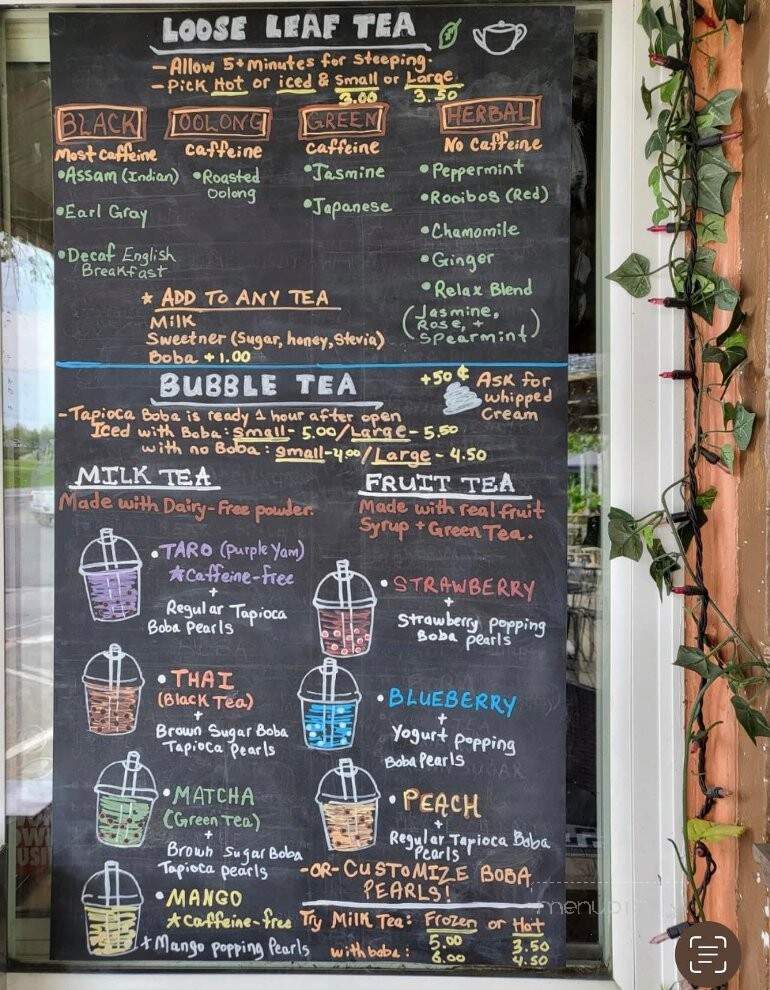 LOOSE LEAF TEA
- Allow 5+ minutes for steeping.
- Pick Hot or iced & Small or Large
3.00 3.50
BLACK
Most caffeine
•Assam (Indian)
•Earl Gray
•Decaf English
Breakfast
OOLONG
caffeine
•Roasted
Oolong
GREEN
caffeine
•Jasmine
•Japanese
HERBAL
No caffeine
•Peppermint
•Rooibos (Red)
•Chamomile
•Ginger
•Relax Blend
(Jasmine,
Rose, +
Spearmint)
★ ADD TO ANY TEA
Milk
Sweetner (Sugar, honey, Stevia)
Boba +1.00
BUBBLE TEA
+50¢ Ask for
whipped
Cream
-Tapioca Boba is ready 1 hour after open
Iced with Boba: small- 5.00/Large- 5.50
with no Boba: small-4.00/Large - 4.50
MILK TEA
Made with Dairy-Free powder.
•TARO (purple Yam)
★Caffeine-free
+
Regular Tapioca
Boba Pearls
•THAI
(Black Tea)
+
Brown Sugar Boba
Tapioca Pearls
•MATCHA
(Green Tea)
+
Brown Sugar Boba
Tapioca pearls
•MANGO
★Caffeine-free
+ Mango popping Pearls
FRUIT TEA
Made with real fruit
Syrup + Green Tea.
•STRAWBERRY
+
Strawberry popping
Boba pearls
•BLUEBERRY
+
Yogurt popping
Boba Pearls
•PEACH
+
Regular Tapioca Boba
Pearls
-OR- CUSTOMIZE BOBA
PEARLS!
Try Milk Tea: Frozen or Hot
5.00 3.50
with boba: 6.00 4.50